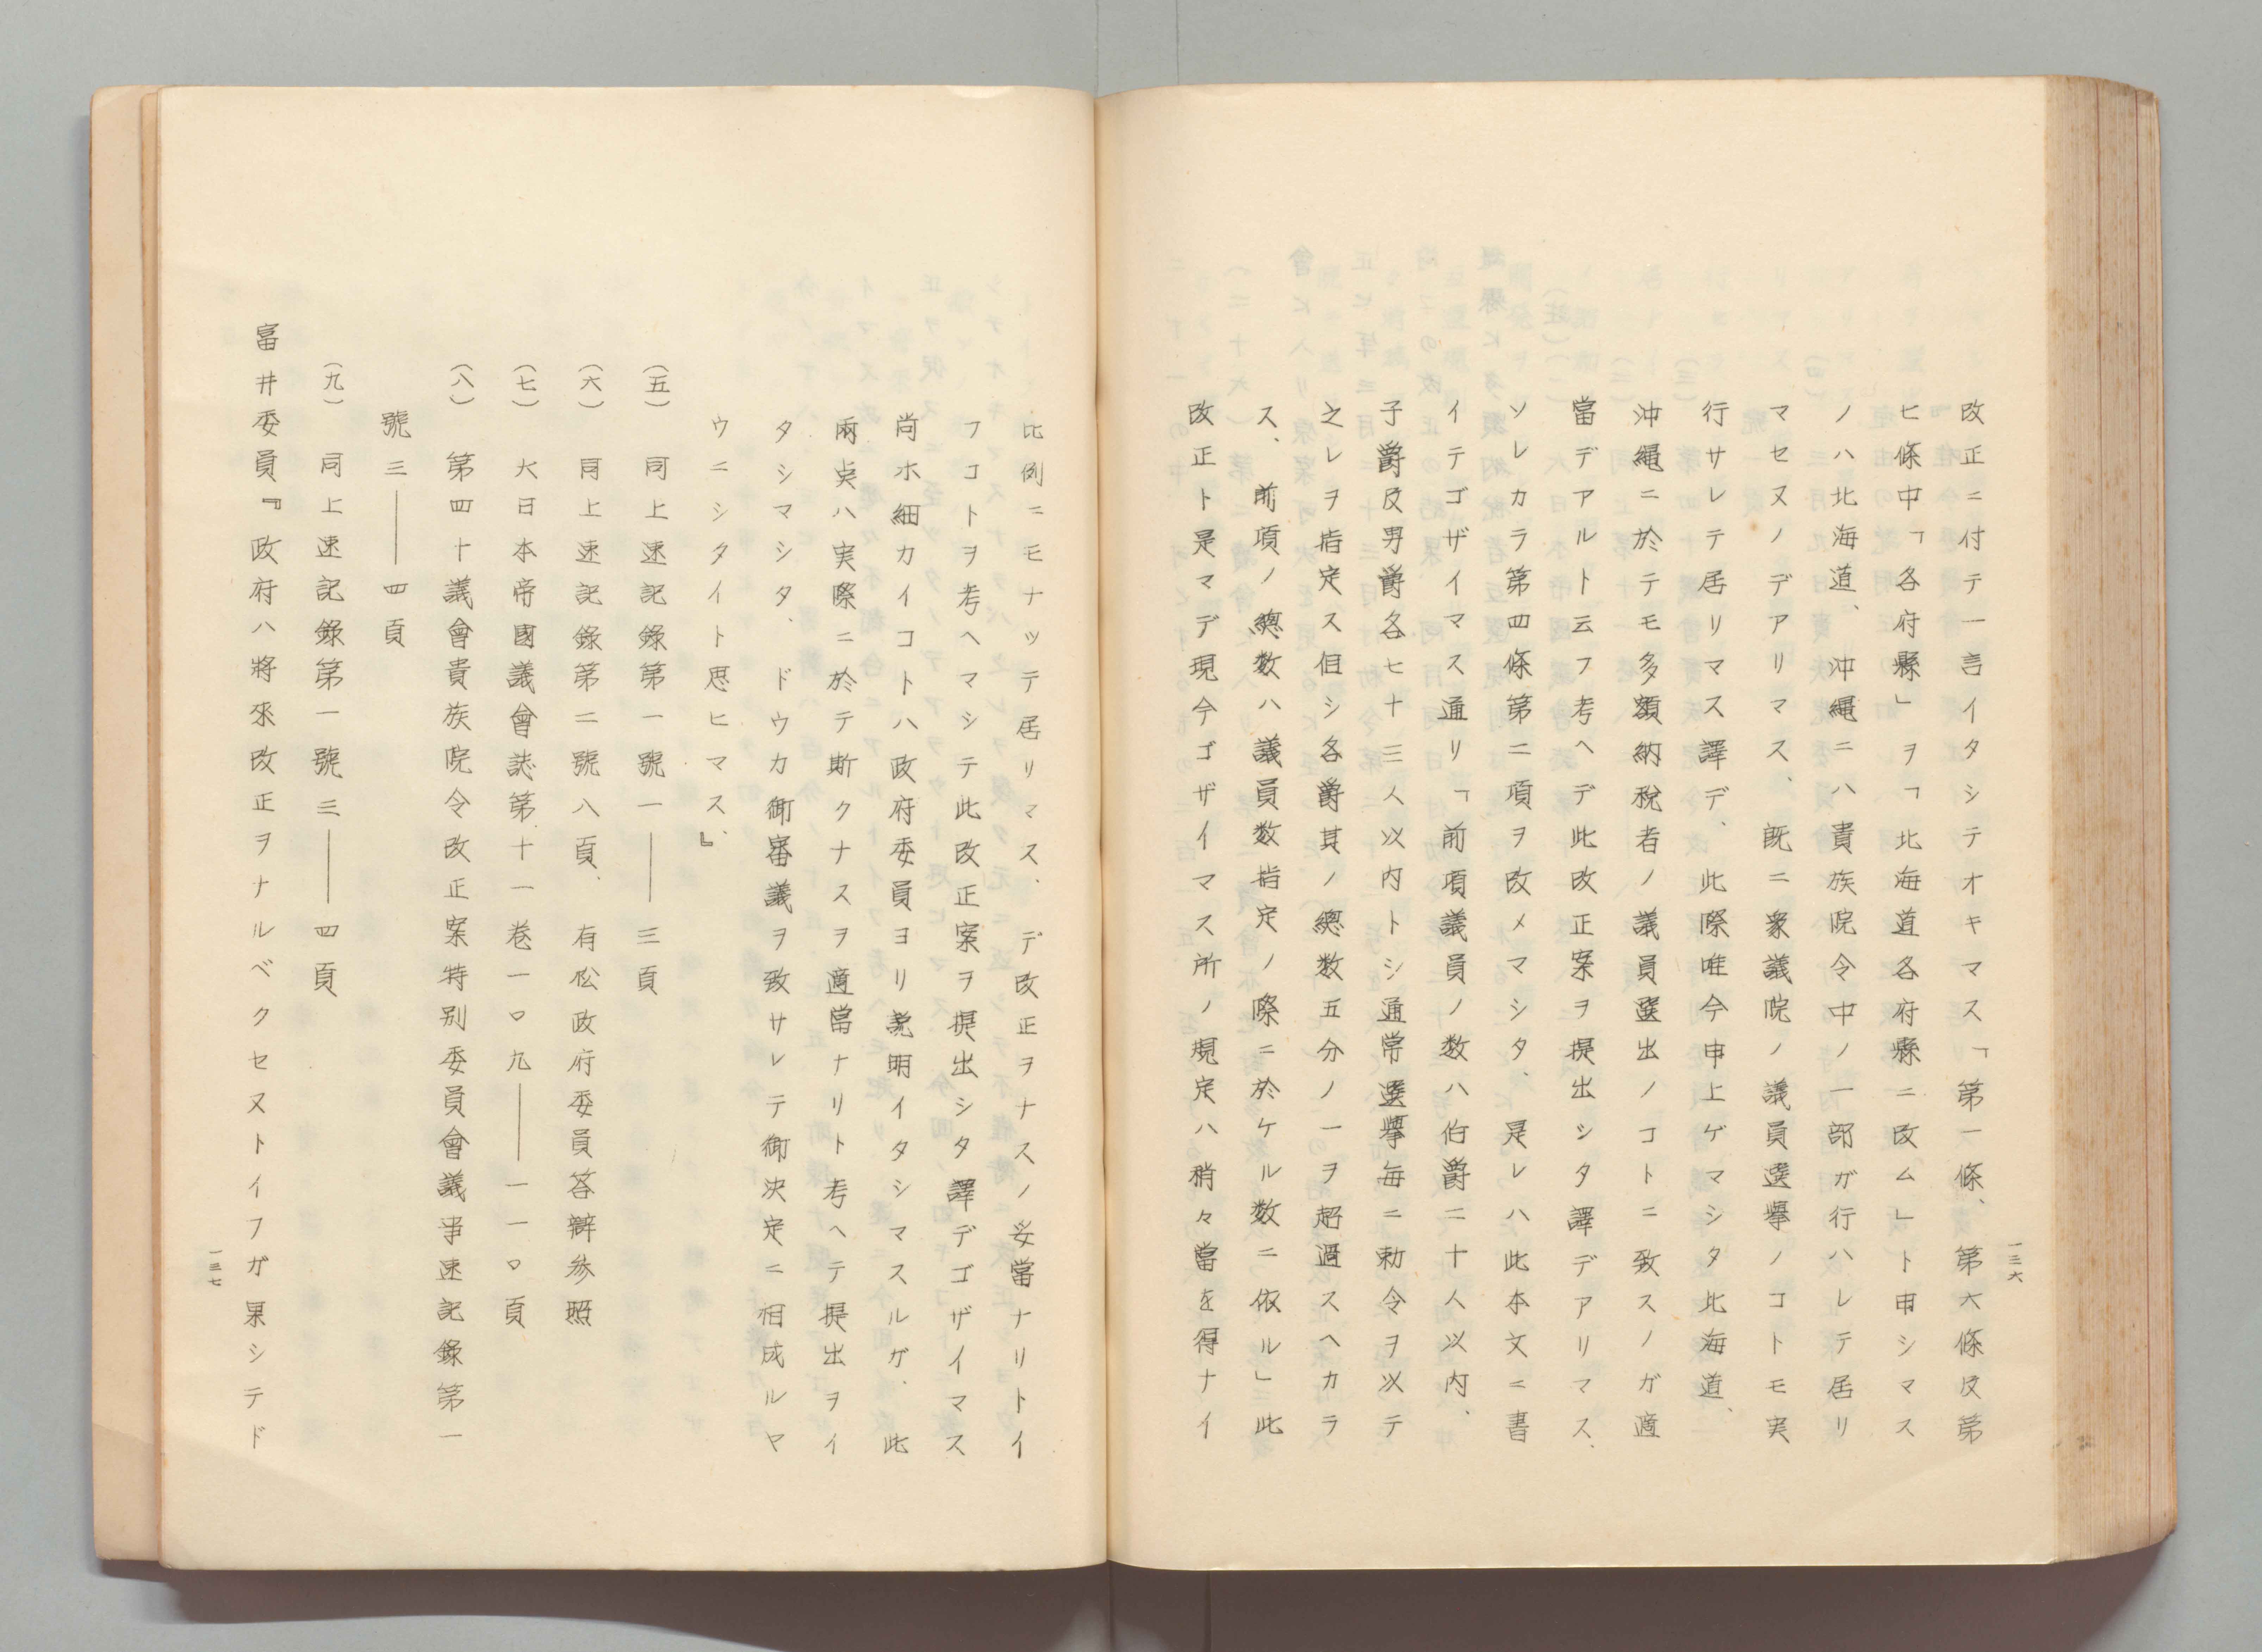 改正ニ付テ一言イタシテオキマス「第一條、第六條及第
七條中「各府縣」ヲ「北海道各府縣ニ改ム」ト申シマス
ノハ北海道、沖繩ニハ貴族院令中ノ一部ガ行ハレテ居リ
マセヌノデアリマス、既ニ衆議院ノ議員選擧ノコトモ実
行サレテ居リマス譯デ、此際唯今申上ゲマシタ北海道、
沖繩ニ於テモ多額納稅者ノ議員選出ノコトニ致スノガ適
當デアルト云フ考ヘデ此改正案ヲ提出シタ譯デアリマス、
ソレカラ第四條第二項ヲ改メマシタ、是レハ此本文ニ書
イテゴザイマス通リ「前項議員ノ数ハ伯爵二十人以内、
子爵及男爵各七十三人以内トシ通常選擧每ニ勅令ヲ以テ
之レヲ指定ス但シ各爵其ノ總数五分ノ一ヲ超過スヘカラ
ス、前項ノ總数ハ議員数指定ノ際ニ於ケル数ニ依ル」此
改正ト是マデ現今ゴザイマス所ノ規定ハ稍々當を得ナイ
一三六
比例ニモナツテ居リマス、デ改正ヲナスノ妥當ナリトイ
フコトヲ考ヘマシテ此改正案ヲ提出シタ譯デゴザイマス
尚ホ細カイコトハ政府委員ヨリ説明イタシマスルガ、此
兩点ハ実際ニ於テ斯クナスヲ適當ナリト考ヘテ提出ヲイ
タシマシタ、ドウカ御審議ヲ致サレテ御決定ニ相成ルヤ
ウニシタイト思ヒマス、』
（五）同上速記錄第一號一——三頁
（六）同上速記錄第二號八頁、有松政府委員答辯参照
（七）大日本帝國議會誌第十一卷一〇九——一一〇頁
（八）第四十議會貴族院令改正案特別委員會議事速記錄第一
號三——四頁
（九）同上速記錄第一號三——四頁
富井委員『政府ハ將來改正ヲナルベクセヌトイフガ果シテド
一三七